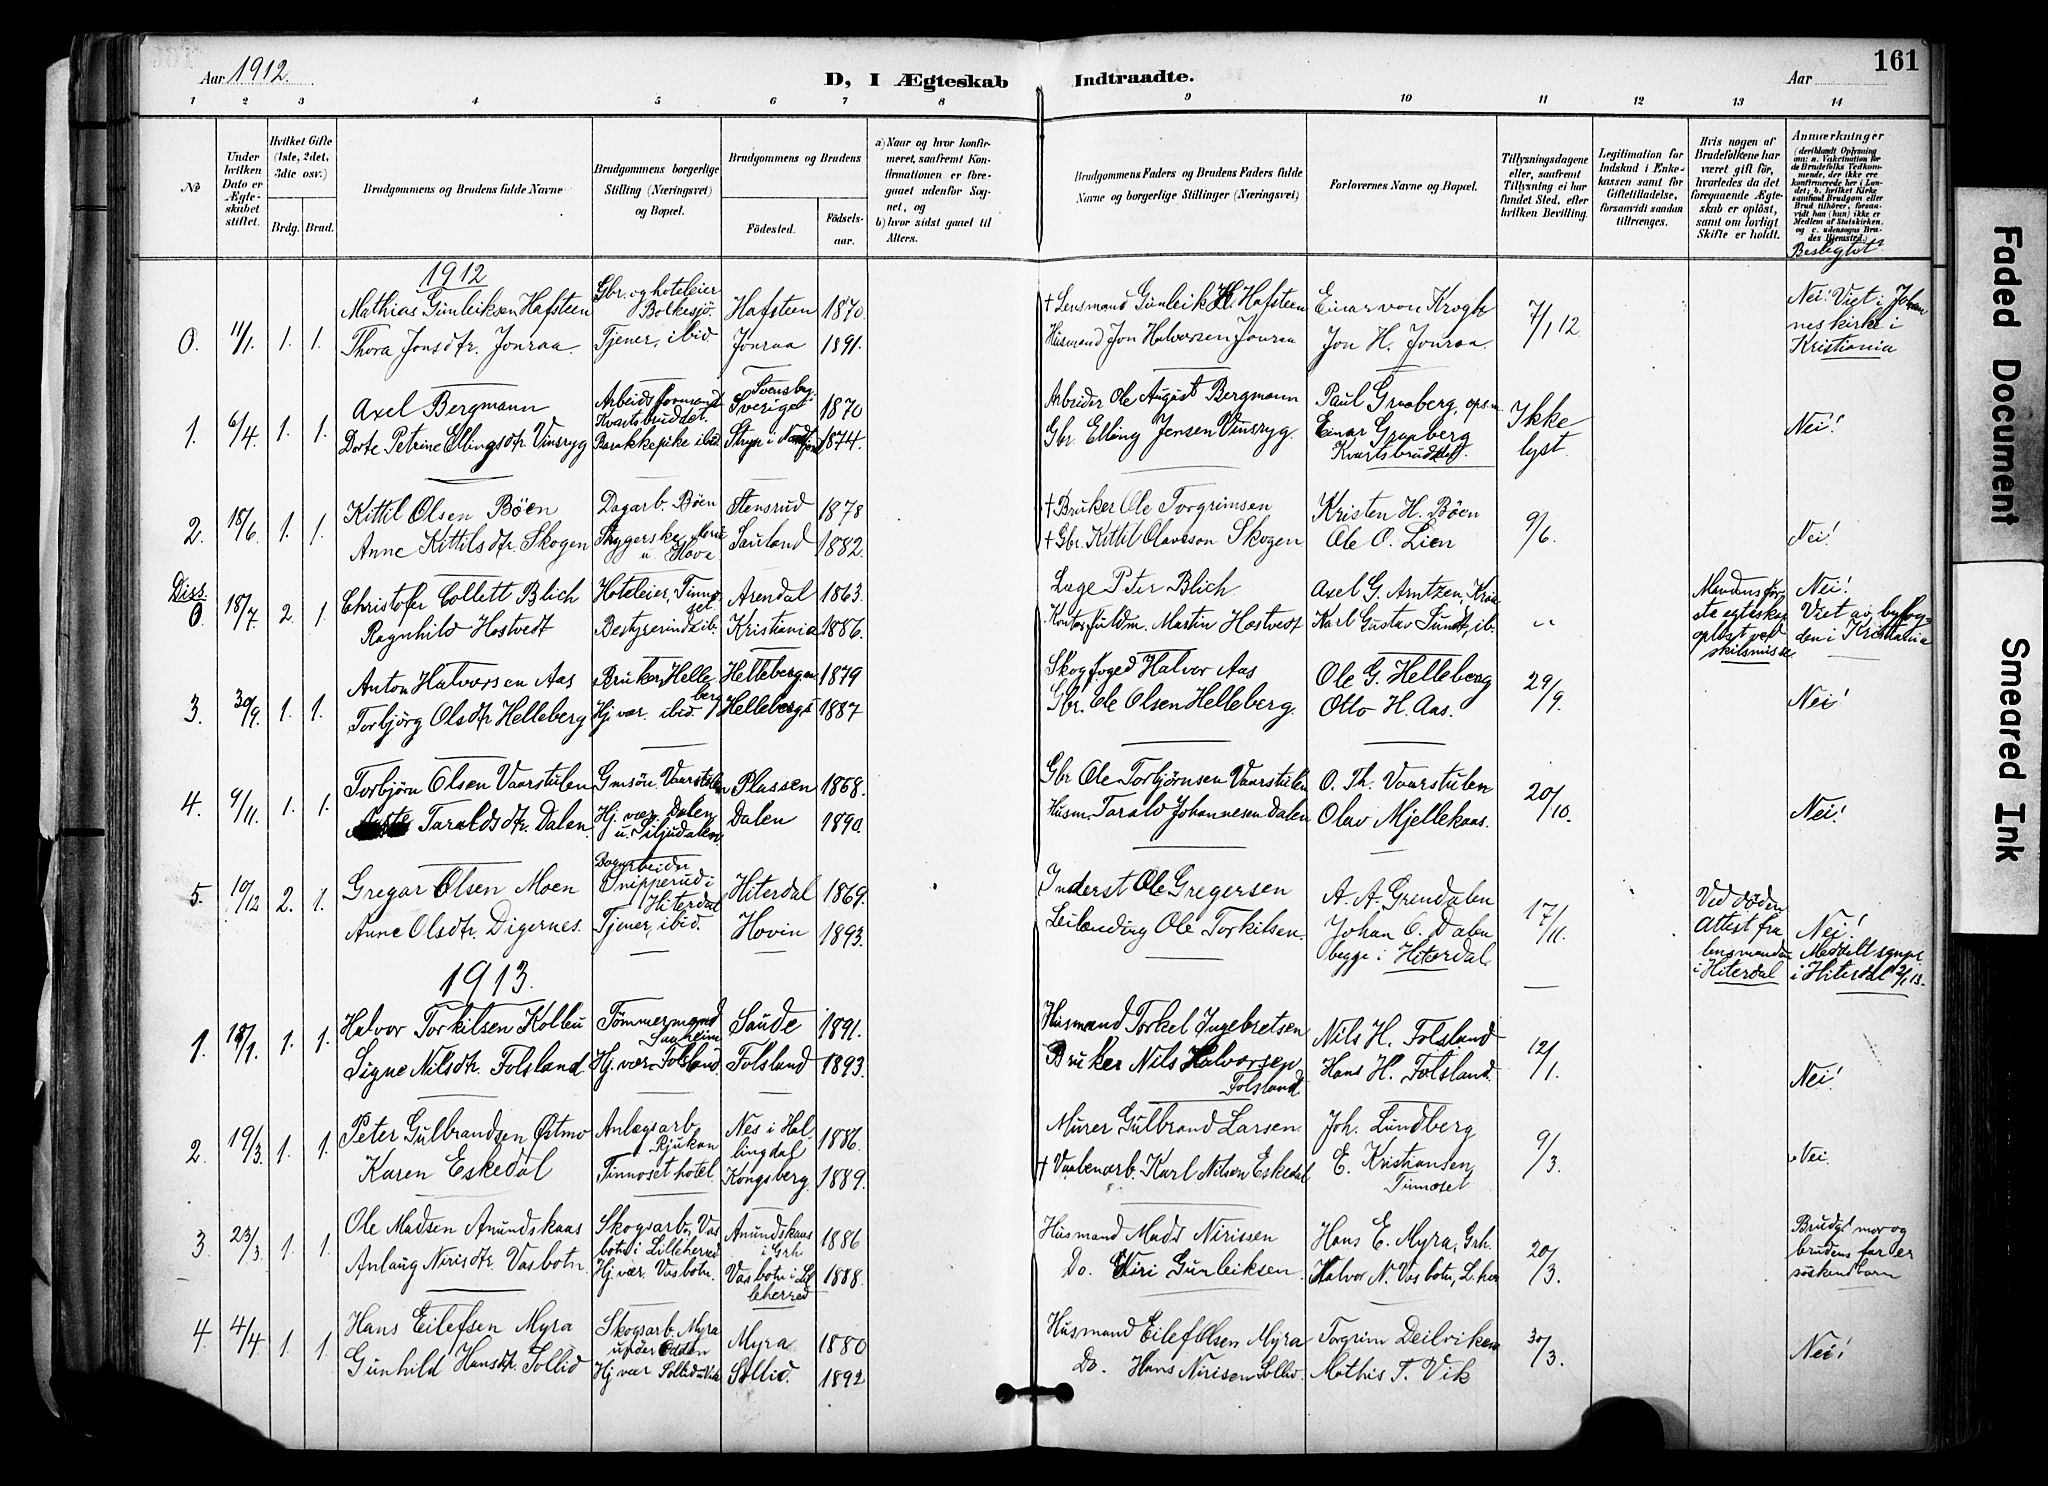 Aar 1912.
D, I Ægteskab Indtraadte.
Aar
161
1 2 3 4 5 6 7 8 9 10 11 12 13 14
No
Under hvilken Dato er Ægteskabet stiftet.
Hvilket Gifte (1ste, 2det, 3die osv.)
Brdg. Brud.
Brudgommens og Brudens fulde Navne
Brudgommens borgerlige Stilling (Næringsvei) og Bopæl.
Brudgommens og Brudens
Födested.
Födsels-aar.
a) Naar og hvor konfirmeret, saafremt Konfirmationen er foregaaet udenför Sognet, og
b) hvor sidst gaaet til Alters.
Brudgommens Faders og Brudens Faders fulde Navne og borgerlige Stillinger (Næringsvei)
Forlovernes Navne og Bopæl.
Tillysningsdagene eller, saafremt Tillysning ei har fundet Sted, efter hvilken Bevilling.
Legitimation for Indskud i Enkekassen samt for Giftetilladelse, forsaavidt saadan tiltrænges.
Hvis nogen af Brudefolkene har været gift för, hvorledes da det foregaaende Ægteskab er oplöst, samt om lovligt Skifte er holdt.
Anmærkninger
Beslegtet?
1912
0. 11/1. 1. 1. Mathias Gunleiksen Hafsteen Gbr. og hoteleier Bolkesjö. Hafsteen 1870. † Lensmand Gunleik H. Hafsteen Einar von Krogh 7/1 12. Nei! Viet i Johanneskirke i Kristiania
Thora Jonsdtr. Jonraa. Tjener, ibid. Jonraa 1891. Husmand Jon Halvorsen Jonraa Jon H. Jonraa.
1. 6/4. 1. 1. Axel Bergmann Arbeidsformand Kvartsbruddet. Sverige 1870 Arbeider Ole August Bergmann Paul Graaberg, Ikke lyst. Nei!
Dorte Petrine Ellingsdtr. Vinsryg Barakkepike ibid Stryn i Nordfjord 1874. Gbr. Elling Jensen Vinsryg. Einar Graaberg Kvartsbruddet.
2. 18/6. 1. 1. Kittil Olsen Böen Dagarb. Böen Stensrud 1878 † Bruker Ole Torgrimsen Kristen H. Böen 9/6. Nei!
Anne Kittilsdtr. Skogen Sauland 1882. † Gbr. Kittil Olavsson Skogen Ole O. Lien
Diss. 0. 18/7. 2. 1. Christofer Collett Blich Hoteleier, Tinnoset. Arendal 1863. Læge Peter Blich. Axel G. Arntzen, Kria „ Mandens förste egteskap oplöst ved skilsmisse Nei! Viet av byfogden i Kristiania
Ragnhild Hostvedt Bestyrerinde ib. Kristiania 1886. Martin Hostvedt Karl Gustav Lund, ib.
3. 30/9. 1. 1. Anton Halvorsen Aas Bruker Helleberg Hellebergen 1879 Skogfoged Halvor Aas Ole G. Helleberg 29/9. Nei!
Torbjörg Olsdtr Helleberg Hj. vær. ibid. Helleberg 1887 Gbr. Ole Olsen Helleberg. Otto H. Aas.
4. 9/11. 1. 1. Torbjörn Olsen Vaarstulen Gmsön Vaarstulen Plassen 1868. Gbr Ole Torbjörnsen Vaarstulen O. Th. Vaarstulen 20/10. Nei!
Taraldsdtr. Dalen Hj. vær. Dalen u. Siljudalen Dalen 1890. Husm. Tarald Johannesen Dalen Olav Mjellekaas.
5. 10/12 2. 1. Gregar Olsen Moen Dagarbeider Snipperud i Hiterdal Hiterdal 1869. Inderst Ole Gregersen A. A. Grendalen 17/11. Ved döden Attest fra lensmanden i Hiterdal Nei! Meddelt sognpr. i Hiterdal 2/1 13.
Anne Olsdtr. Digernes. Tjener, ibid. Hovin 1893. Leilending Ole Torkilsen. Johan O. Dalen begge i Hiterdal.
1913.
1. 18/1. 1. 1. Halvor Torkilsen Kolleu Tömmermand Sauheim Saude 1891. Husmand Torkel Ingebretsen Nils H. Folsland 12/1. Nei!
Signe Nilsdtr. Folsland. Hj. vær. Folsland. Folsland 1893. Bruker Nils Halvorsen Folsland Hans H. Folsland.
2. 19/3. 1. 1. Peter Gulbrandsen Östmo Anlægsarb. Rjukan Nes i Hallingdal 1886. Murer Gulbrand Larsen. Joh. Lundberg 9/3. Nei.
Karen Eskedal Tinnoset hotel. Kongsberg. 1889. † Vaabenarb. Karl Nilsen Eskedal E. Kristiansen, Tinnoset
3. 23/3. 1. 1. Ole Madsen Anundskaas Skogsarb., Vasbotn i Lilleherred Anundskaas i Grh 1886 Husmand Mads Nirissen Hans E. Myra, Grh. 20/3. Brudg! mor og brudens far er söskendbarn
Anlaug Nirisdtr. Vasbotn. Hj. vær. Vasbotn. Vasbotn i Lilleherred 1888. Do. Niri Gunleiksen. Halvor N. Vasbotn, L. her
4. 4/4. 1. 1. Hans Eilefsen Myra Skogsarb. Myra under Odden Myra 1880 Husmand Eilef Olsen Myra Torgrim Deilviken 30/3. Nei!
Gunhild Hansdtr. Sollid Hj vær Sollid u Vik Sollid. 1892 Do. Hans Nirisen Sollid. Mathis T. Vik
Faded Document
Smeared Ink